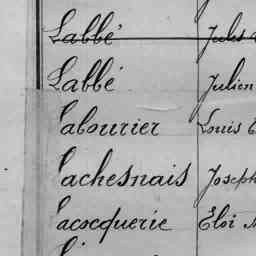 Labbé Jules
Labbé Julien
Labourier Louis
Lachesnais Joseph
Lacocquerie Eloi